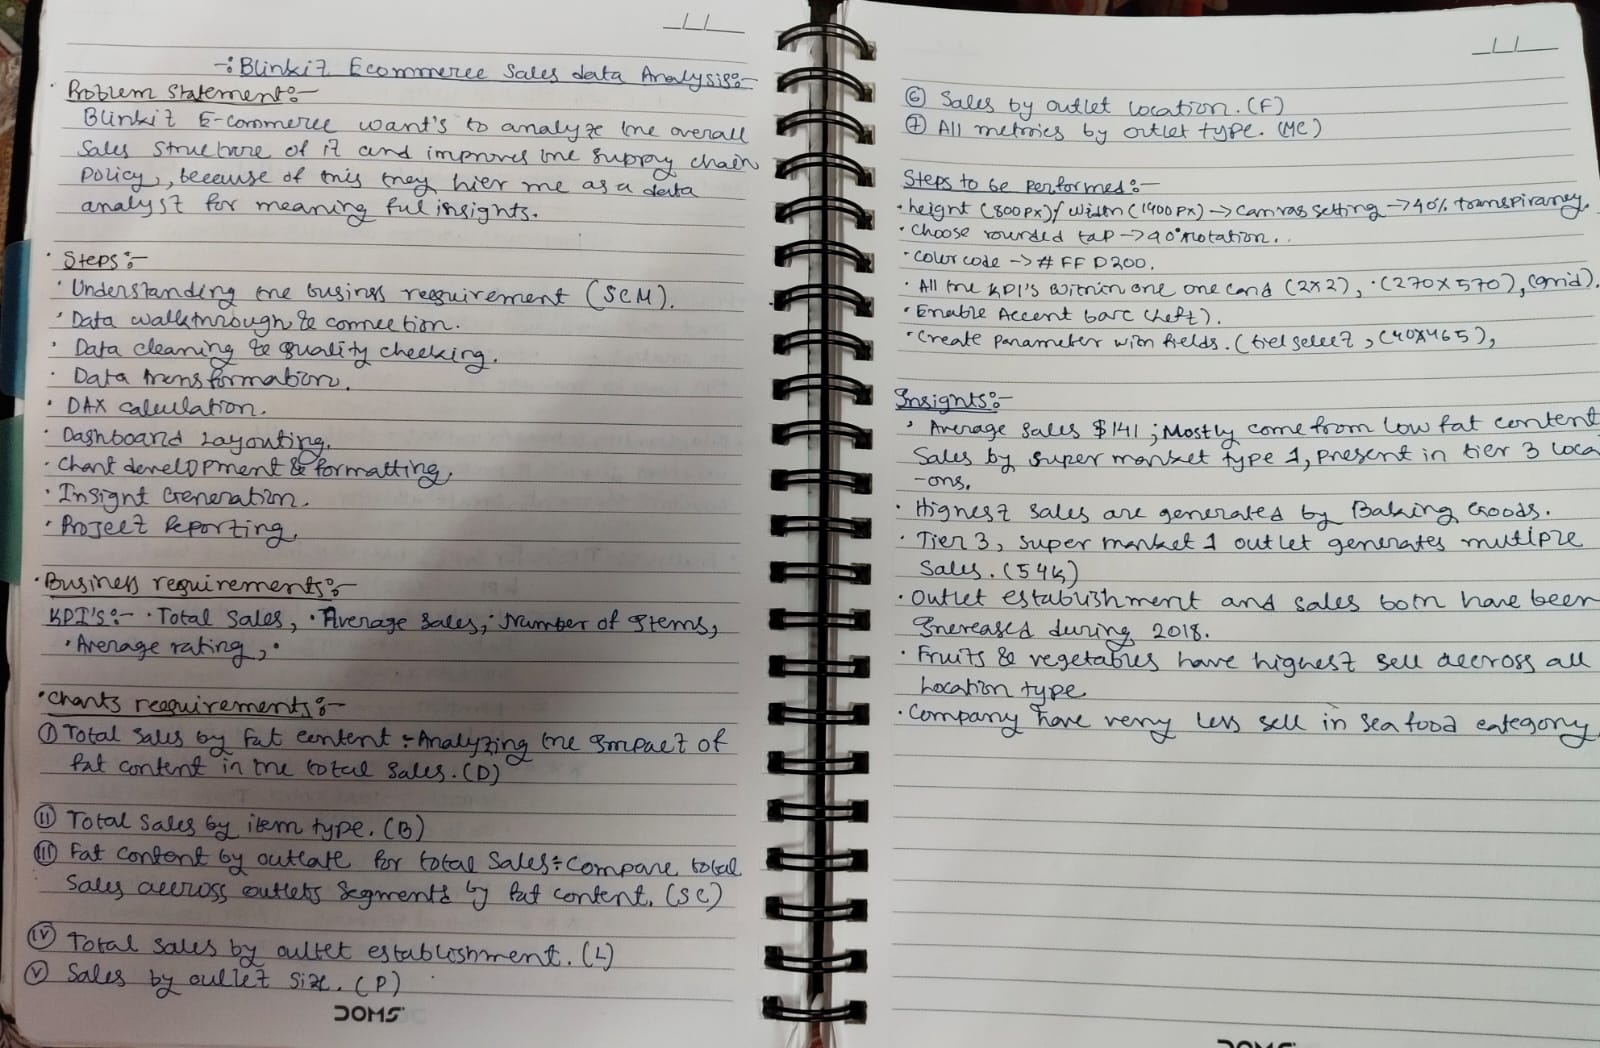 -: Blinkit Ecommerce Sales data Analysis:-
• Problem Statement:-
Blinkit E-commerce want's to analyze the overall
Sales structure of it and improves the supply chain
policy, because of this they hier me as a data
analyst for meaning ful insights.
• Steps:-
• Understanding the business requirement (SCM).
• Data walkthrough & connection.
• Data cleaning & quality checking.
• Data transformation.
• DAX calculation.
• Dashboard Layouting.
• Chart development & formatting,
• Insight Generation.
• Project Reporting,
• Business requirements:-
KPI's:- • Total Sales, • Average Sales, • Number of Items,
• Average rating, •
• Charts requirements:-
I Total Sales by fat content :- Analyzing the Impact of
fat content in the total Sales. (D)
II Total Sales by item type. (B)
III Fat content by outlate for total Sales :- Compare total
Sales accross outlets segments by fat content. (SC)
IV Total Sales by outlet establishment. (L)
V Sales by outlet size. (P)
DOMS
6 Sales by outlet location. (F)
7 All metrics by outlet type. (MC)
Steps to be performed:-
• height (800px)/ width (1400px) → canvas setting → 40%
• Choose rounded tap → 90° rotation..
• Color code → # FFD200.
• All the KPI's within one one card (2x2), • (270 x 570), (grid).
• Enable Accent bar (left).
• Create parameter with fields. ( , (40x465),
Insights:-
• Average sales $141 ; Mostly come from low fat content
Sales by super market type 1, present in tier 3 loca
-ons.
• Highest sales are generated by Baking Goods.
• Tier 3, super market 1 outlet generates mutiple
Sales. (54k)
• Outlet establishment and sales both have been
Increased during 2018.
• Fruits & vegetables have highest sell accross all
Location type.
• Company have very less sell in sea food category
DOMS